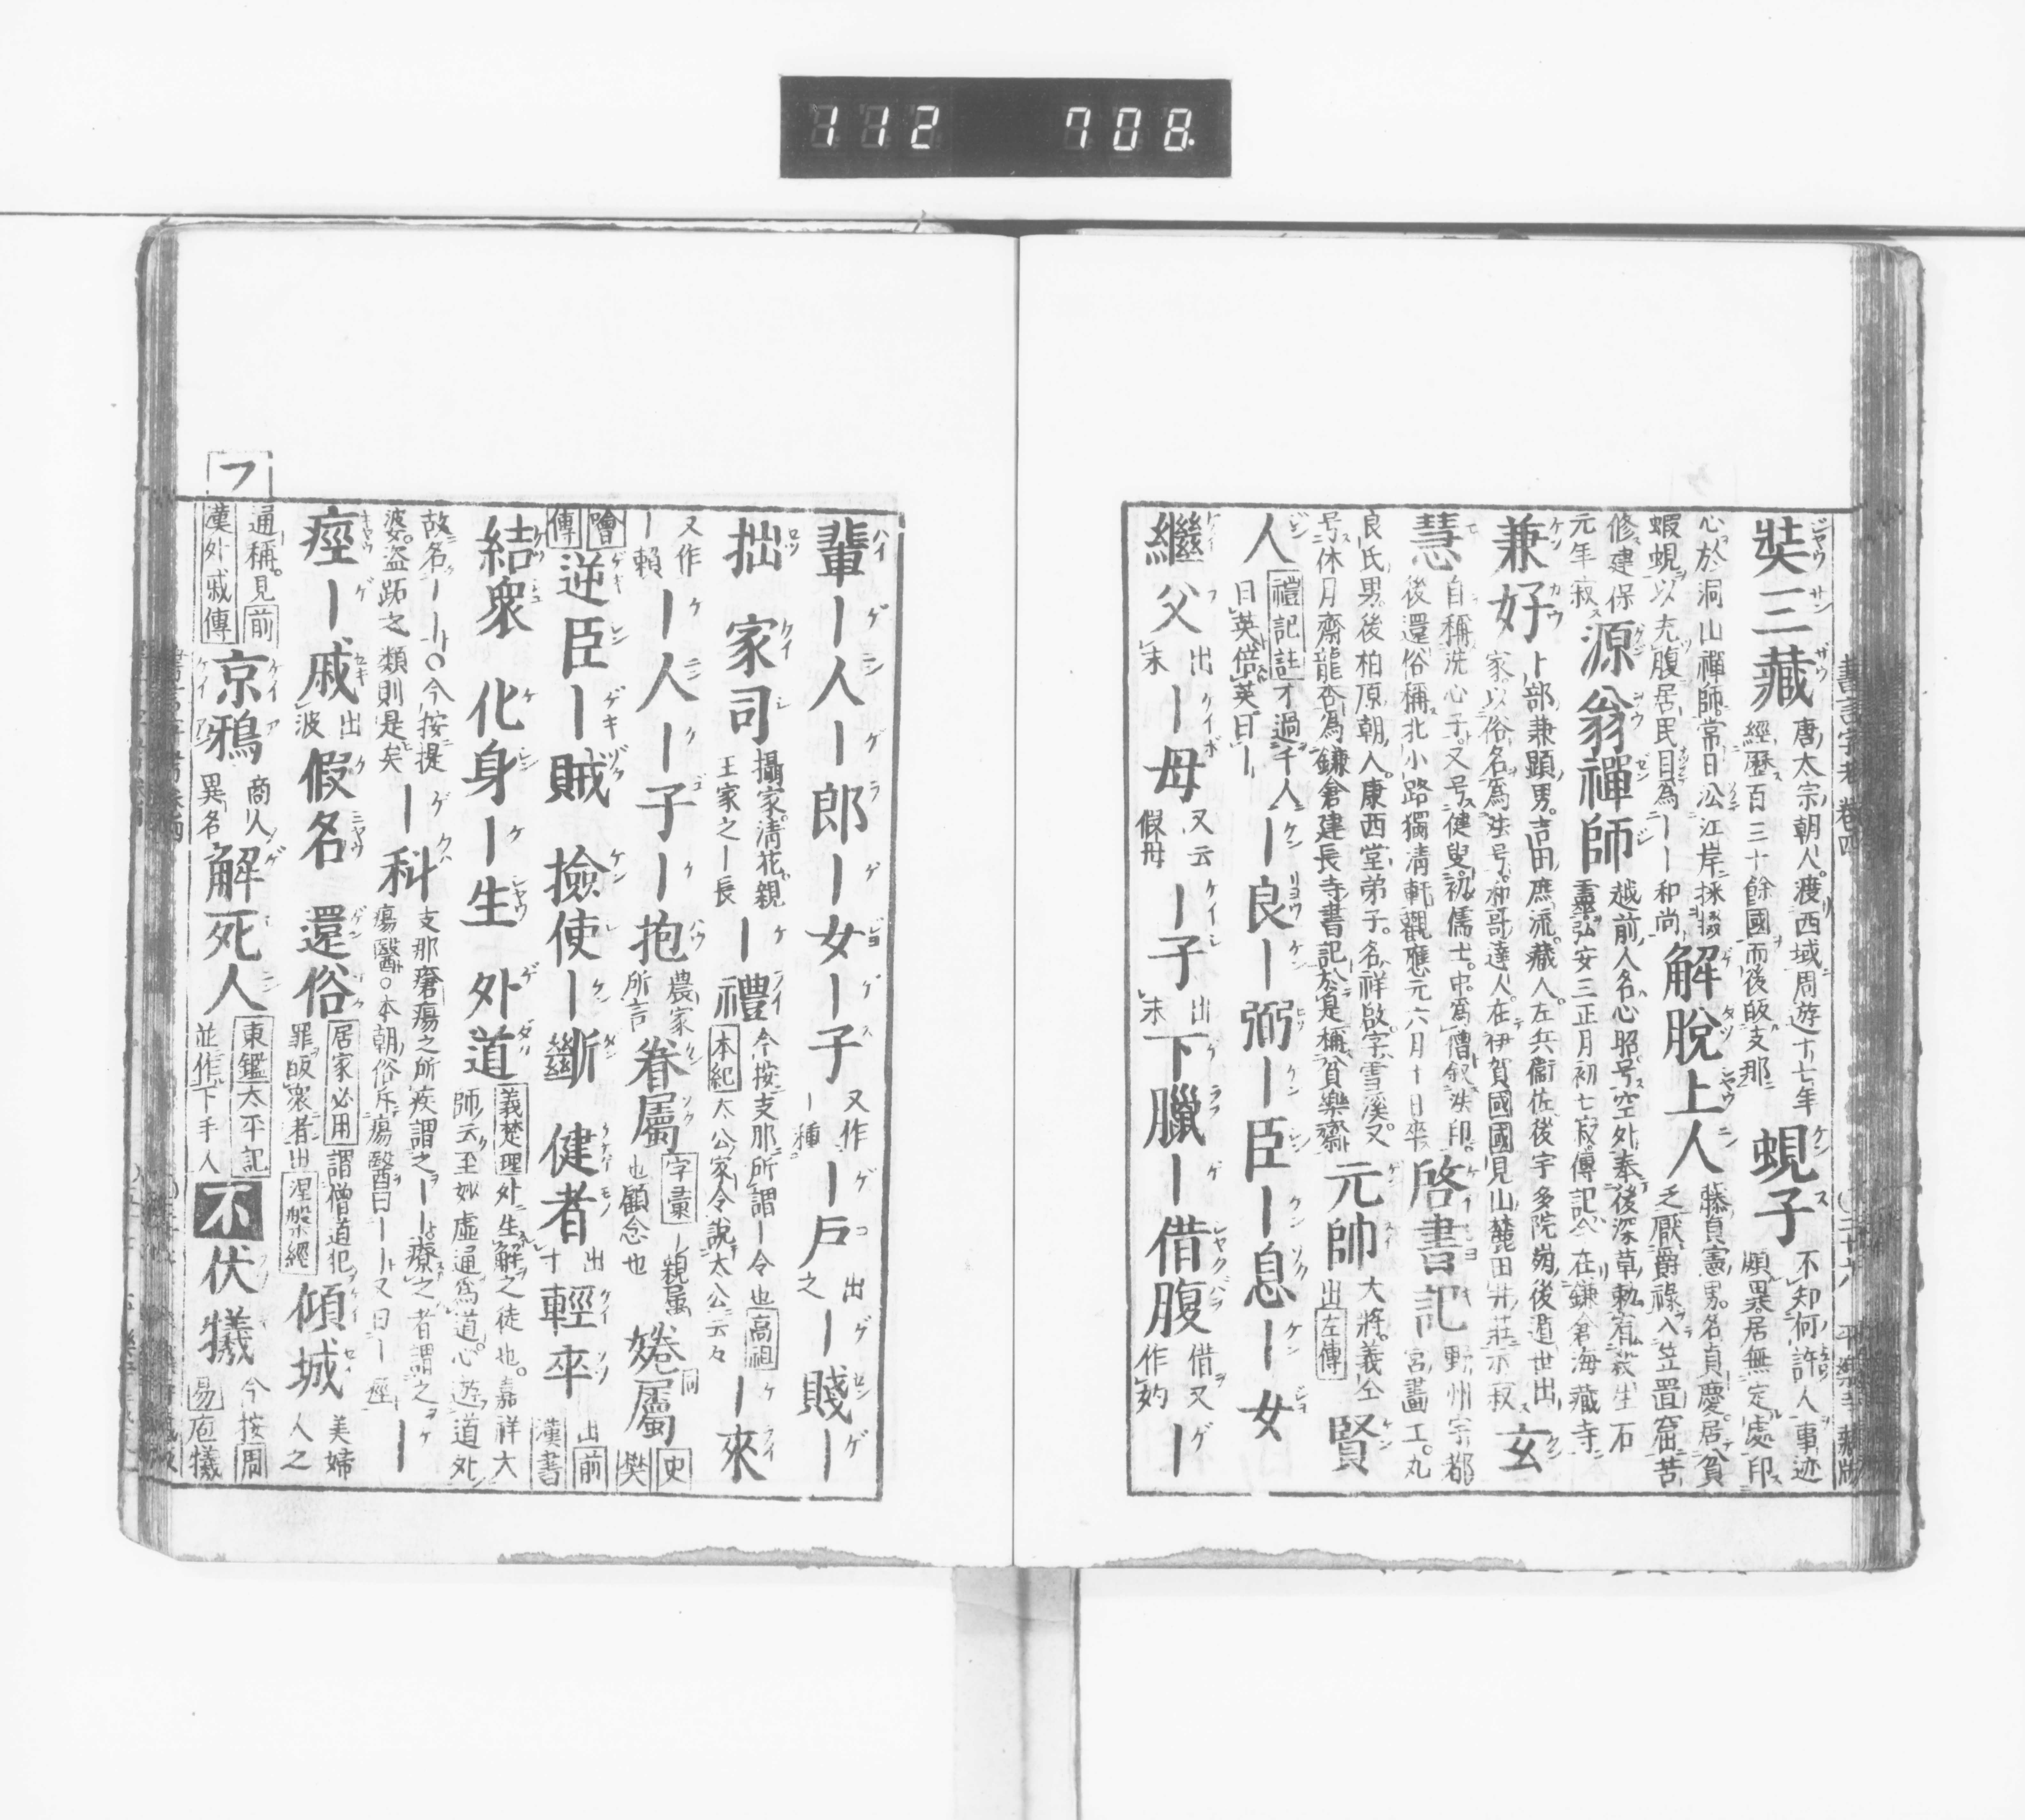 112 708
奘三藏 唐太宗朝人渡西域周遊十七年
經歷百三十餘國而後皈支那 蜆子 不知何許人事迹
頗異居無定處印
心於洞山禪師常日沿江岸採掇
蝦蜆以充腹居民目為——和尚 解脫上人 藤貞憲男名貞慶居貧
乏厭爵祿入笠置窟苦
修建保
元年寂 源翁禪師 越前人名心昭号空外奉後深草勅宥殺生石
靈弘安三正月初七寂傳記 在鎌倉海藏寺
兼好 卜部兼顕男吉田庶流藏人左兵衞佐後宇多院崩後遁世出
家以俗名為法号和哥達人在伊賀國國見山麓田井莊示寂 玄
慧 自稱洗心子又号健叟初儒士中為僧叙法印
後還俗稱北小路獨清軒觀應元六月十日卒 啓書記 野州宇都
宮畫工丸
良氏男後柏原朝人康西堂弟子名祥啟字雪溪又
号休月齋龍杏為鎌倉建長寺書記於是稱貧樂齋 元帥 大將義仝
出左傳 賢
人 禮記註才過千人
曰英倍英曰— —良—弼—臣—息—女
繼父 出
末 —母 又云
假母 —子 出
末 下臘—借腹 借又
作妁 —
輩—人—郎—女—子 又作
—種 —戶 出
之 —賤—
拙 家司 攝家清花親
王家之—長 —禮 今按支那所謂—令也高祖
本紀太公家令說太公云々 —來
又作
—賴 —人—子—抱 農家
所言 眷屬 字彙—親属
也顧念也 婘屬 同史
樊
噲
傳 逆臣—賊 撿使—斷 健者 出
寸 輕卒 出前
漢書
結衆 化身—生 外道 義楚理外生解之徒也嘉祥大
師云至妙虛通為道心遊道外
故名——○今按提
婆盜跖之類則是矣 —科 支那瘡瘍之所疾謂之—療之者謂之
瘍醫○本朝俗斥瘍醫曰——又曰—瘂 —
瘂—戚 出
波 假名 還俗 居家必用謂僧道犯
罪皈衆者出涅槃經 傾城 美婦
人之
通稱見前
漢外戚傳 京鴉 商人
異名 解死人 東鑑太平記
並作下手人 不伏犧 今按周
易庖犧
フ